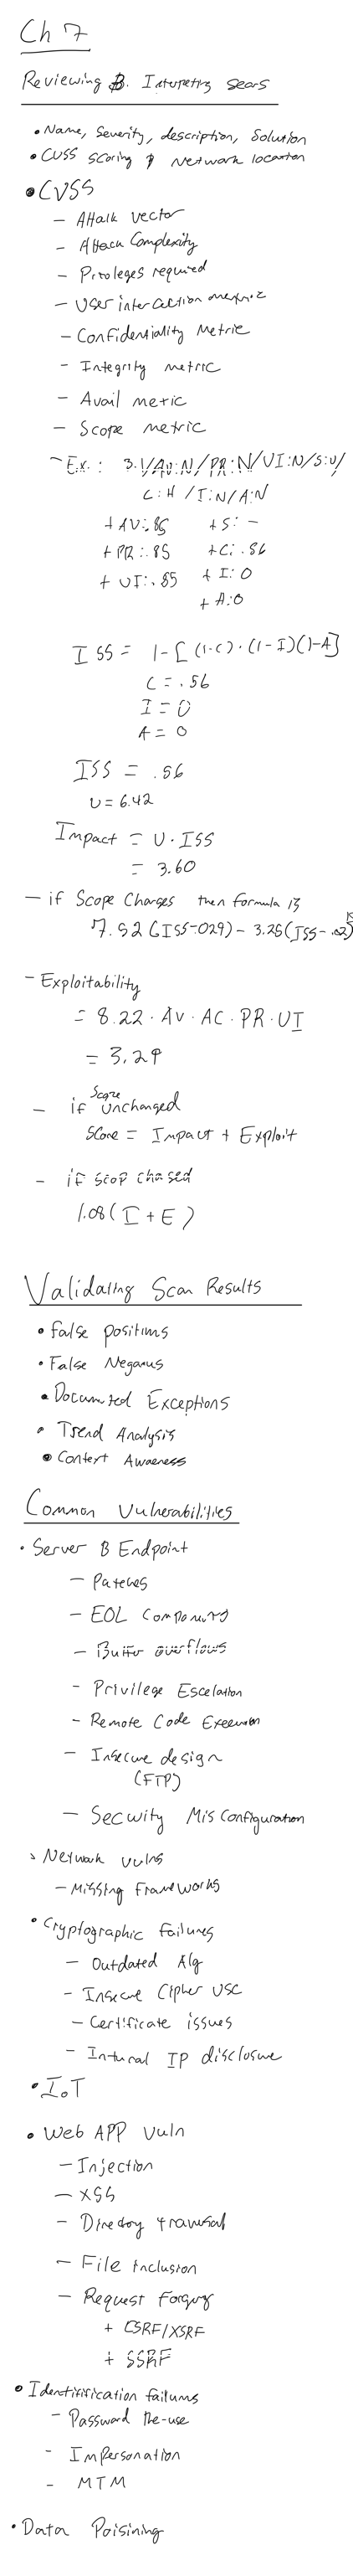 Ch 7
Reviewing & Interpreting Scans
• Name, Severity, description, Solution
• CVSS scoring & Network location
• CVSS
– Attack vector
– Attack Complexity
– Privileges required
– User interaction metric
– Confidentiality Metric
– Integrity metric
– Avail metric
– Scope metric
– Ex.: 3.1/AV:N/PR:N/UI:N/S:U/
C:H/I:N/A:N
+ AV:.85 + S: –
+ PR:.85 + C:.56
+ UI:.85 + I:0
+ A:0
ISS = 1-[(1-C)·(1-I)(1-A]
C = .56
I = 0
A = 0
ISS = .56
U = 6.42
Impact = U·ISS
= 3.60
– if Scope Changes then formula is
7.52(ISS-029) – 3.25(ISS-.02)15
– Exploitability
= 8.22·AV·AC·PR·UI
= 3.29
– if Scope Unchanged
Score = Impact + Exploit
– if scop chased
1.08(I+E)
Validating Scan Results
• False positives
• False Negatives
• Documented Exceptions
• Trend Analysis
• Context Awareness
Common Vulnerabilities
• Server & Endpoint
– Patches
– EOL Components
– Buffer overflows
– Privilege Escalation
– Remote Code Execution
– Insecure design
(FTP)
– Security Misconfiguration
• Network vulns
– Missing Frameworks
• Cryptographic failures
– Outdated Alg
– Insecure Cipher use
– Certificate issues
– Internal IP disclosure
• IoT
• Web APP Vuln
– Injection
– XSS
– Directory traversal
– File Inclusion
– Request Forgery
+ CSRF/XSRF
+ SSRF
• Identitification failures
– Password Re-use
– Impersonation
– MTM
• Data Poisining